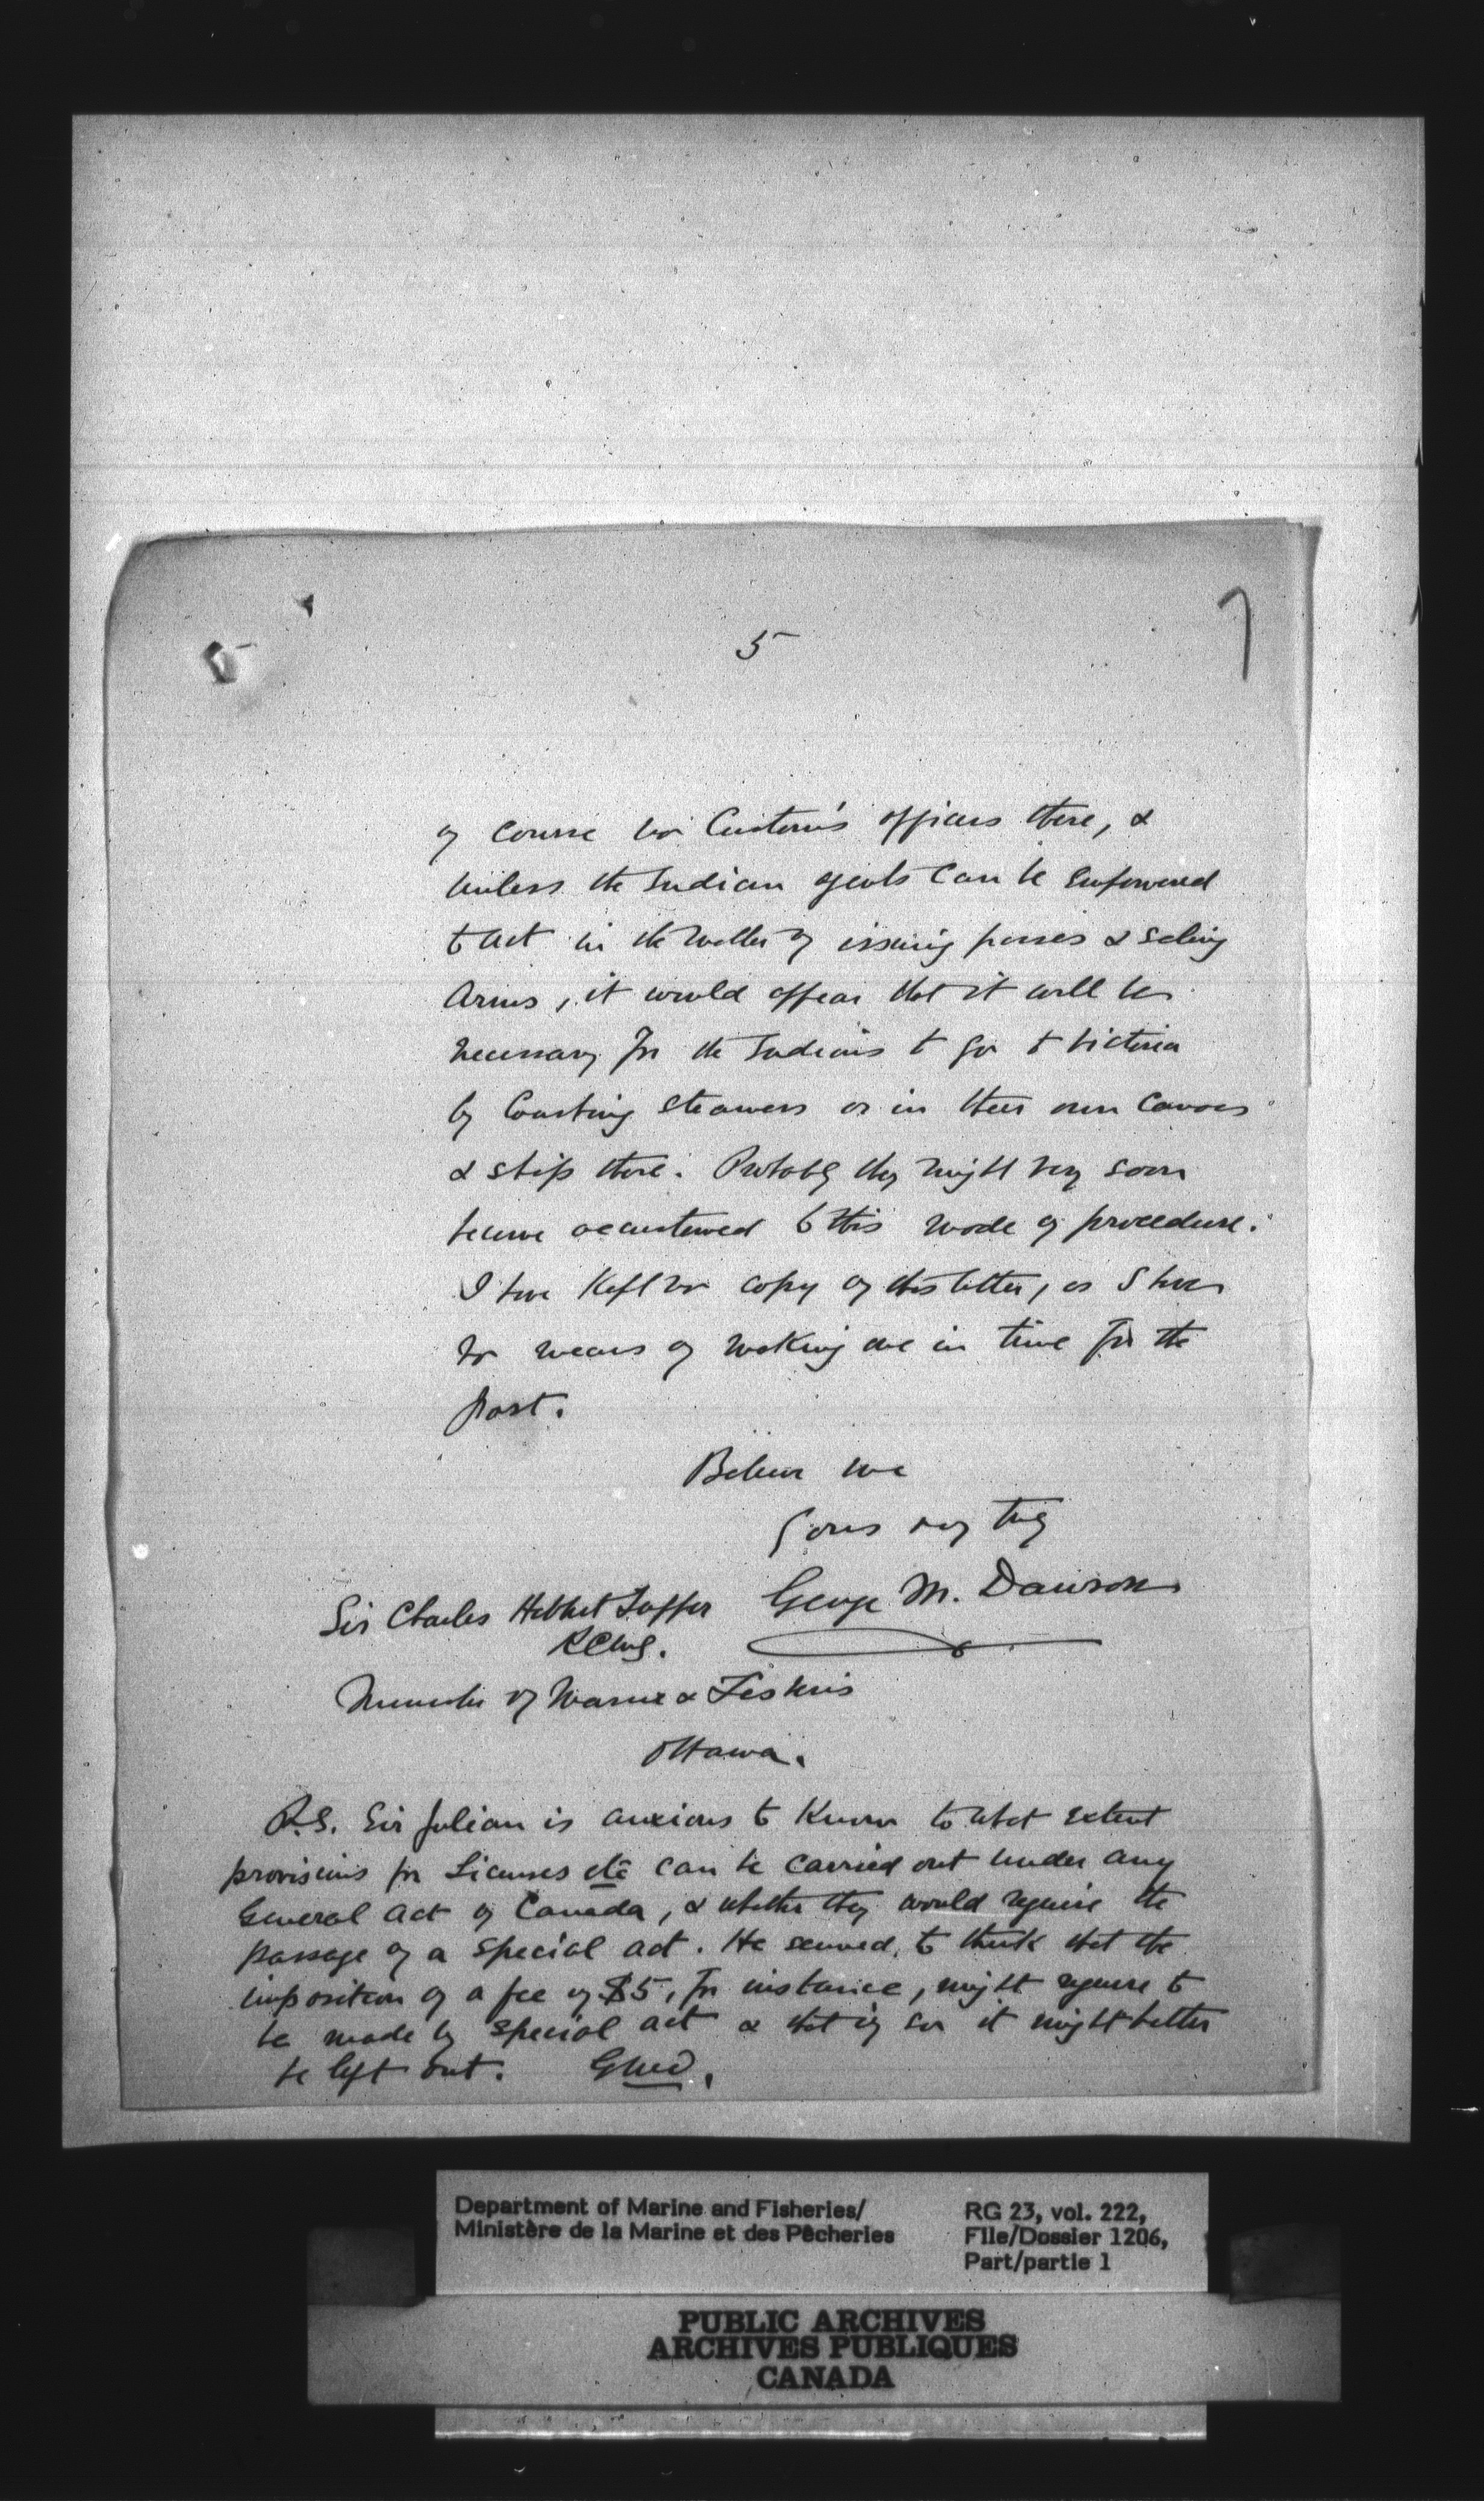 5
7
of course no Customs officers there, &
unless the Indian agents can be empowered
to act in the matter of issuing passes & sealing
Arms, it would appear that it will be
necessary for the Indians to go to Victoria
by Coasting steamers or in their own Canoes
& ship there. Probably they might very soon
become accustomed to this mode of procedure.
I have kept no copy of this letter, as I have
no means of making one in time for the
post.
Believe me
Yours very truly
George M. Dawson
Sir Charles Hibbert Tupper
KCMG.
Minister of Marine & Fisheries
Ottawa.
P.S. Sir Julian is anxious to know to what extent
provisions for Licenses etc can be carried out under any
General act of Canada, & whether they would require the
passage of a special act. He seemed to think that the
imposition of a fee of $5, for instance, might require to
be made by special act & that if so it might better
be left out. GMD.
Department of Marine and Fisheries/
Ministère de la Marine et des Pêcheries
RG 23, vol. 222,
File/Dossier 1206,
Part/partie 1
PUBLIC ARCHIVES
ARCHIVES PUBLIQUES
CANADA